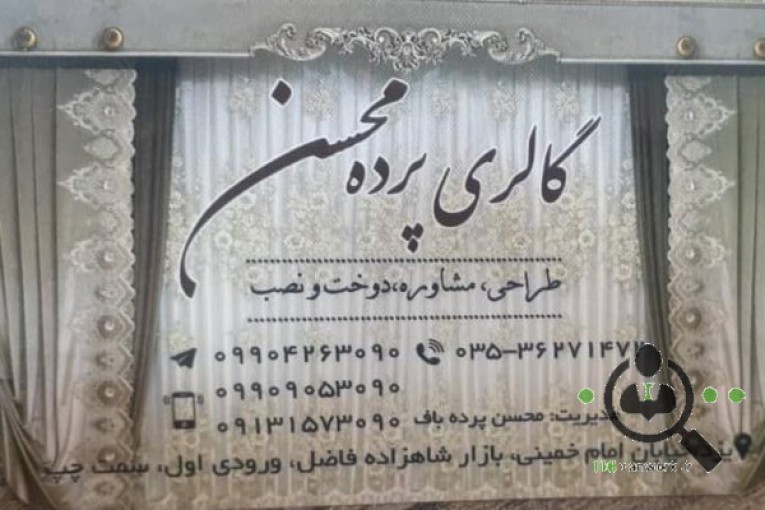 گالری پرده محسن
طراحی، مشاوره، دوخت و نصب
۰۳۵-۳۶۲۷۱۴۷۲ ۰۹۹۰۴۲۶۳۰۹۰
۰۹۹۰۹۰۵۳۰۹۰
مدیریت: محسن پرده باف ۰۹۱۳۱۵۷۳۰۹۰
یزد، خیابان امام خمینی، بازار شاهزاده فاضل، ورودی اول، سمت چپ